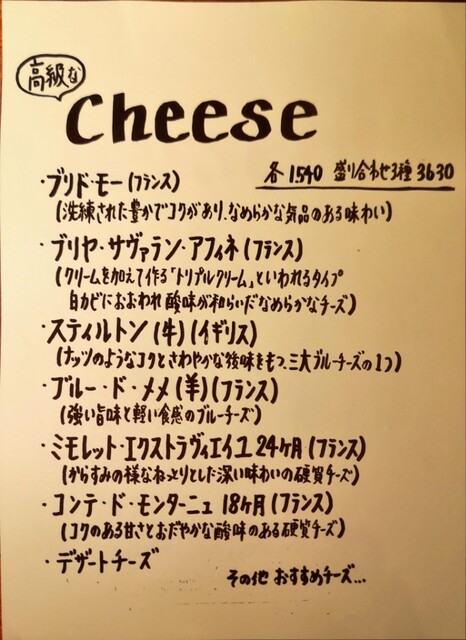 高級な
Cheese
各1540 盛り合わせ3種 3630
・ブリ・ド・モー(フランス)
(洗練された豊かでコクがあり、なめらかな気品のある味わい)
・ブリヤ・サヴァラン・アフィネ(フランス)
(クリームを加えて作る「トリプルクリーム」といわれるタイプ
白カビにおおわれ酸味が和らいだなめらかなチーズ)
・スティルトン(牛)(イギリス)
(ナッツのようなコクとさわやかな後味をもつ、三大ブルーチーズの1つ)
・ブルー・ド・メメ(羊)(フランス)
(強い旨味と軽い食感のブルーチーズ)
・ミモレット・エクストラヴィエイユ 24ヶ月(フランス)
(からすみの様なねっとりとした深い味わいの硬質チーズ)
・コンテ・ド・モンターニュ 18ヶ月(フランス)
(コクのある甘さとおだやかな酸味のある硬質チーズ)
・デザートチーズ
その他 おすすめチーズ...